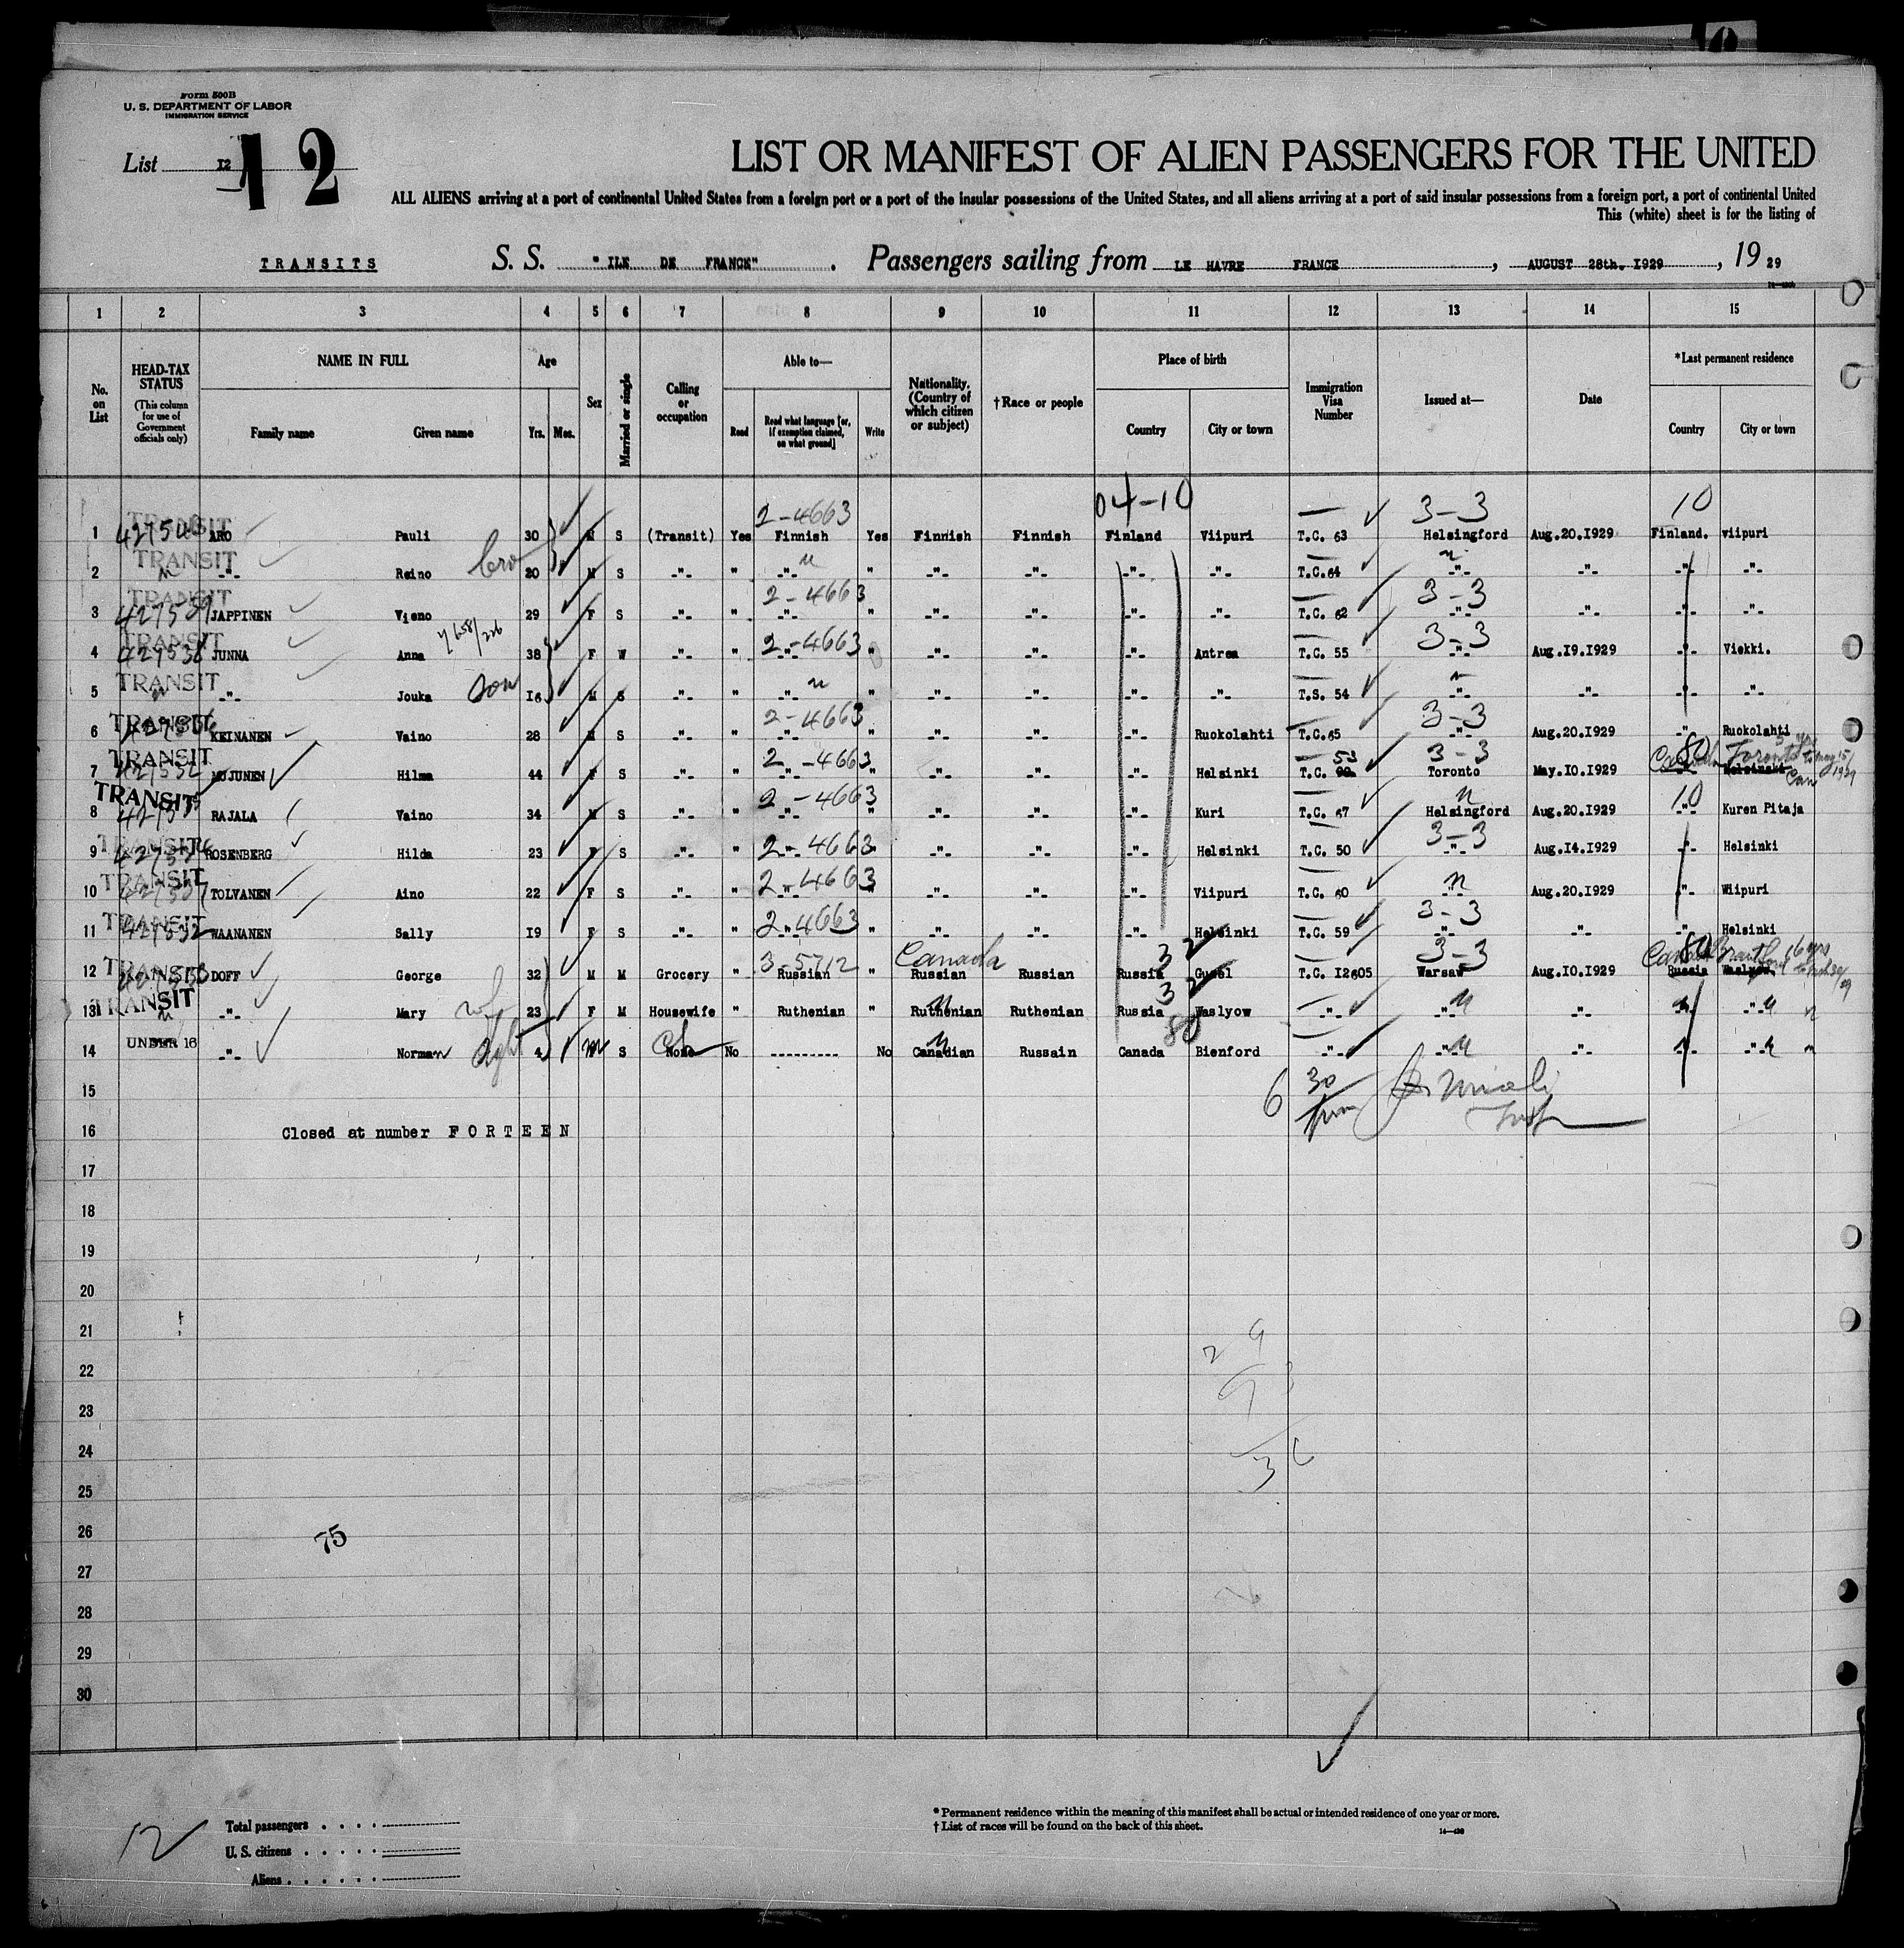 Form 500B
U. S. DEPARTMENT OF LABOR
IMMIGRATION SERVICE
List 12 12
LIST OR MANIFEST OF ALIEN PASSENGERS FOR THE UNITED
ALL ALIENS arriving at a port of continental United States from a foreign port or a port of the insular possessions of the United States, and all aliens arriving at a port of said insular possessions from a foreign port, a port of continental United
This (white) sheet is for the listing of
TRANSITS S. S. "ILE DE FRANCE". Passengers sailing from LE HAVRE FRANCE, AUGUST 28th. 1929, 19 29
1 2 3 4 5 6 7 8 9 10 11 12 13 14 15
No. on List
HEAD-TAX STATUS (This column for use of Government officials only)
NAME IN FULL Family name Given name
Age Yrs. Mos.
Sex
Married or single
Calling or occupation
Able to— Read Read what language [or, if exemption claimed, on what ground] Write
Nationality. (Country of which citizen or subject)
†Race or people
Place of birth Country City or town
Immigration Visa Number
Issued at—
Date
*Last permanent residence Country City or town
2-4663 04-10 3-3 10
1 TRANSIT ARO Pauli 30 M S (Transit) Yes Finnish Yes Finnish Finnish Finland Viipuri T.C. 63 Helsingford Aug.20.1929 Finland. viipuri
2 TRANSIT " -"- Reino bro 20 M S -"- " -"- " -"- -"- -"- -"- T.C.64 -"- -"- -"- -"-
2-4663 3-3
3 TRANSIT 427539 JAPPINEN Vieno 29 F S -"- " -"- " -"- -"- -"- -"- T.C. 62 -"- -"- -"- -"-
2-4663 3-3
4 TRANSIT 427538 JUNNA Anna 38 F W -"- " -"- " -"- -"- -"- Antrea T.C. 55 -"- Aug.19.1929 -"- Viekki.
5 TRANSIT " -"- Jouka son 16 M S -"- " -"- " -"- -"- -"- -"- T.S. 54 -"- -"- -"- -"-
2-4663 3-3
6 TRANSIT KEINANEN Vaino 28 M S -"- " -"- " -"- -"- -"- Ruokolahti T.C.65 -"- Aug.20.1929 -"- Ruokolahti
2-4663 53 3-3 80
7 TRANSIT MUJUNEN Hilma 44 F S -"- " -"- " -"- -"- -"- Helsinki T.C. Toronto May.10.1929 Canada Toronto to May 15/1929 Helsinski Can
2-4663 " 10
8 TRANSIT RAJALA Vaino 34 M S -"- " -"- " -"- -"- -"- Kuri T.C. 67 Helsingford Aug.20.1929 -"- Kuren Pitaja
2-4663 3-3
9 TRANSIT ROSENBERG Hilda 23 F S -"- " -"- " -"- -"- -"- Helsinki T.C. 50 -"- Aug.14.1929 -"- Helsinki
2-4663 "
10 TRANSIT TOLVANEN Aino 22 F S -"- " -"- " -"- -"- -"- Viipuri T.C. 60 Aug.20.1929 -"- Wiipuri
2-4663 3-3
11 TRANSIT 427532 WAANANEN Sally 19 F S -"- " -"- " -"- -"- -"- Helsinki T.C. 59 -"- -"- -"- Helsinki
3-5712 Canada 3 2 3-3 80 Canada Brantford 6 yrs
12 TRANSIT DOFF George 32 M M Grocery " Russian " Russian Russian Russia Gusel T.C. 12605 Warsaw Aug.10.1929 Russia Waslyow
3 2
13 TRANSIT " -"- Mary wf 23 F M Housewife " Ruthenian " Ruthenian Ruthenian Russia Waslyow -"- -"- -"- -"- -"-
80
14 UNDER 16 -"- Norman 4 M S None No --------- No Canadian Russain Canada Bienford -"- -"- -"- -"- -"-
15
16 Closed at number FORTEEN
17
18
19
20
21
22
23
24
25
26
75
27
28
29
30
12
Total passengers
U. S. citizens
Aliens
*Permanent residence within the meaning of this manifest shall be actual or intended residence of one year or more.
†List of races will be found on the back of this sheet.